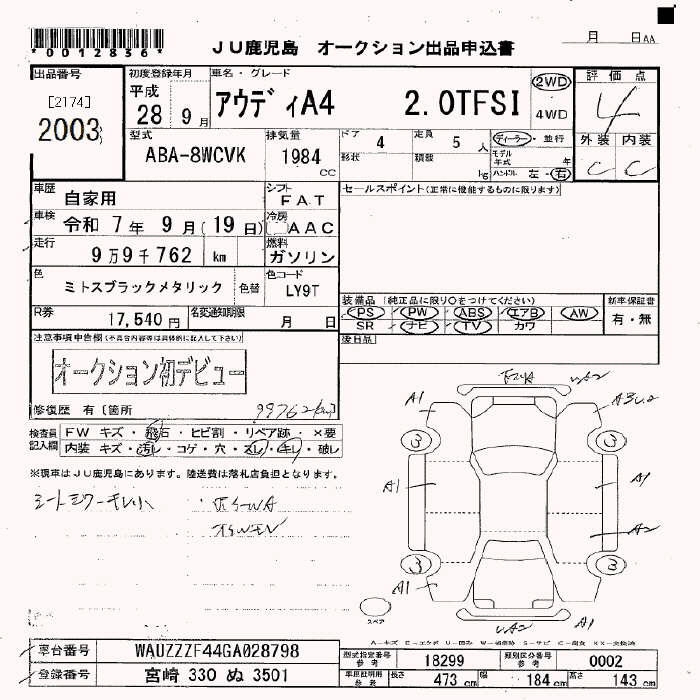 *0012836*
JU鹿児島 オークション出品申込書
月 日 AA
出品番号 初度登録年月 車名・グレード 評価点
[2174] 平成 アウディA4 2.0TFSI 2WD 4
2003 28 9月 4WD
型式 排気量 ドア 4 定員 5 人 ディーラー・並行 外装 内装
ABA-8WCVK 1984 cc 形状 積載 kg モデル年式 年 C C
ハンドル 左・右
車歴 自家用 シフト FAT セールスポイント(正常に機能するものに限ります)
車検 令和 7年 9月(19日) 冷房 AAC
走行 9万9千762 km 燃料 ガソリン
色 ミトスブラックメタリック 色替 色コード LY9T
装備品(純正品に限り○をつけてください) 新車保証書
R券 17,540円 名変通知期限 月 日
PS PW ABS エアB AW 有・無
SR ナビ TV カワ
注意事項申告欄(不具合内容等は具体的に記入して下さい) 後日品
オークション初デビュー
修復歴 有 [箇所 99762
検査員記入欄 FW キズ・飛石・ヒビ割・リペア跡・×要
内装 キズ・汚レ・コゲ・穴・スレ・キレ・破レ
※現車はJU鹿児島にあります。陸送費は落札店負担となります。
A1
3 3
A1 A1
A2
3 3
A1 A1
スペア
車台番号 WAUZZZF44GA028798
登録番号 宮崎 330 ぬ 3501
型式指定番号 参考 18299 類別区分番号 参考 0002
車庫証明用 参考 長さ 473 cm 幅 184 cm 高さ 143 cm